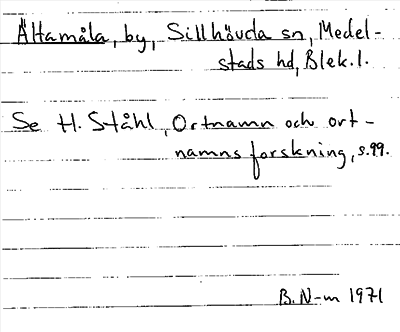 Ältamåla, by, Sillhövda sn, Medel-
stads hd, Blek.l.
Se H. Ståhl, Ortnamn och ort-
namnsforskning, s.99.
B. N-m 1971